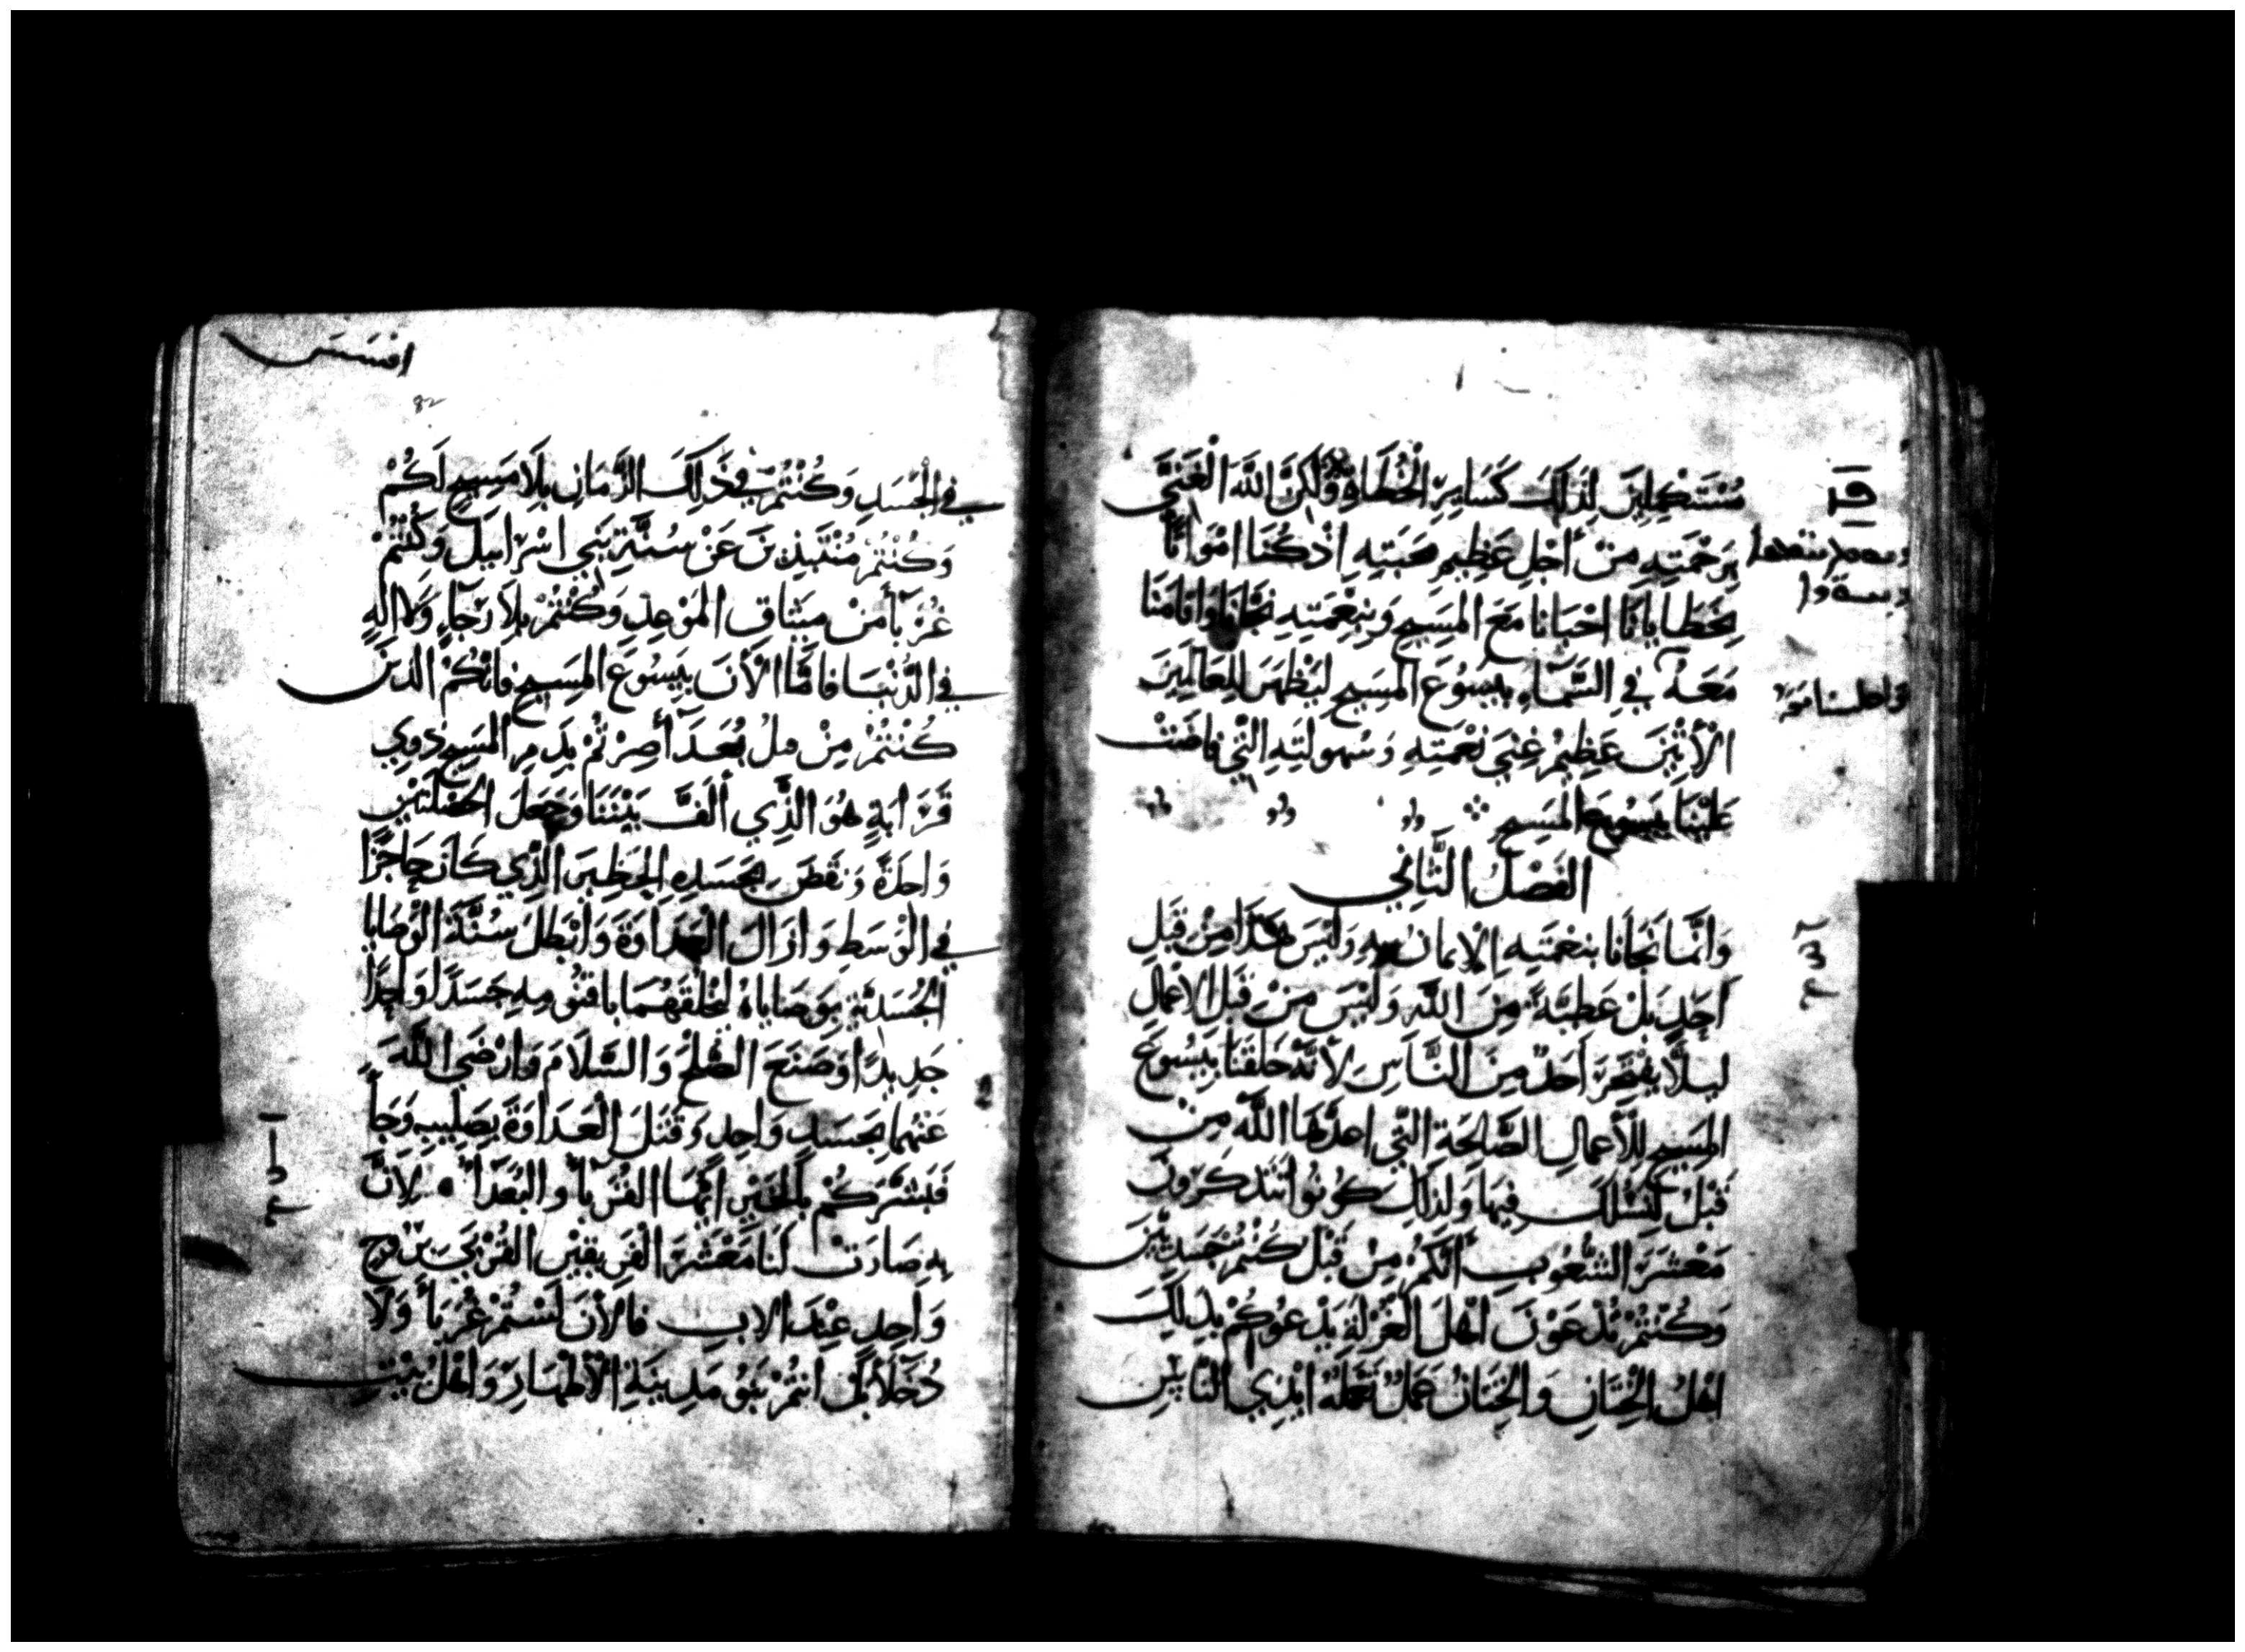 مُسْتَكْمِلِينَ لِذَلِكَ كَسَايِرِ الْخُطَاةِ وَلَكِنَّ اللَّهَ الْغَنِيَّ
بِرَحْمَتِهِ مِنْ أَجْلِ عَظِيمِ مَحَبَتِهِ اِذْ كُنَا امْوَاتًا
بِخَطَايَانَا احْيَانَا مَعَ الْمَسِيحِ وَبِنِعْمَتِهِ نَجَّانَا وَاقَامَنَا
مَعَهُ فِي السَّمَاءِ بِيَسُوعَ الْمَسِيحِ لِيُظْهِرَ لِلعَالَمِينَ
الْآتِيْنَ عَظِيمُ غِنَي نِعْمَتِهِ وَسُهولَتِهِ الَّتِي فَاضَتْ
عَلَيْنَا بِيَسُوعَ الْمَسِيحِ
الفَصْلُ الثَّانِي
وَانَّمَا نَجَانَا بِنِعْمَتِهِ الْاِيمانُ بِهِ وَلَيْسَ هَذَا مِنْ قِبَلِ
اَحَدٍ بَلْ عَطِيَّةً مِنَ اللَّهِ وَلَيْسَ مِنْ قِبَلِ الْاعْمَالِ
لِيلَّا يَفْتَخِرَ اَحَدٌ مِنَ النَّاسِ لِأَنَّهُ خَلَقَنَا بِيَسُوعَ
الْمَسِيحِ لِلْأَعْمالِ الصَّالِحَةِ الَّتِي اعدَّهَا اللَّهُ مِنْ
قَبْلُ لِنَسْلُكَ فِيهَا وَلِذَلِكَ كُونُوا تَتَذَكَرُونَ
مَعْشَرَ الشُّعُوبِ أَنَّكُمْ مِنْ قَبْل كُنْتُمْ جَسَدِيّيْنَ
وَكُنْتُمْ تُدْعَوْنَ اهْلَ الْغُرْلَةِ يَدْعُوكُمْ بِذَلِكَ
اهْلُ الْخِتَانِ وَالْخِتَانُ عَمَلٌ تَعْمَلُهُ ايْدِي النَّاسِ
افسس
82
فِي الْجَسَدِ وَكُنْتُمْ فِي ذَلِكَ الزَّمَانِ بِلَا مَسِيحٍ لَكُمْ
وَكُنْتُمْ مُنْتَبِذِينَ عَنْ سُنَّةِ بَنِي اسْرَاييلَ وَكُنْتُمْ
غُرَبَآً مِنْ مِيثَاقِ الْمَوْعِدِ وَكُنْتُمْ بِلَا رَجَاءٍ وَلَا الَهٍ
فِي الدُّنْيَا فَامَّا الْأَنَ بِيَسُوعَ الْمَسِيحِ فَانَّكُمْ الذينَ
كُنْتُمْ مِنْ قبلُ بُعَدَآً صِرْتُمْ بِدَمِ الْمَسِيحِ ذَوِي
قَرَابَةٍ هُوَ الَّذِي أَلَّفَ بَيْنَنَا وَجَعَلَ الْخَصْلَتَيْنِ
وَاحِدَةً وَنَقَضَ بِجَسَدِهِ الْحَظِيرَ الَّذِي كَانَ حَاجِزًا
فِي الْوَسَطِ وَازَالَ الْعَدَاوَةَ وَابْطَلَ سُنَّةَ الْوَصَايَا
الْجَسَدِيَّةِ بِوَصَايَاهُ لِيَخْلُقَهُمَا بِاقْنُومِهِ جَسَدًا وَاحِدًا
جَدِيدًا وَصَنَعَ الصُّلْحَ وَالسَّلَامَ وَارْضَي اللَّهَ
عَنْهُمَا بِجَسَدٍ وَاحِدٍ وَقَتَلَ الْعَدَاوَةَ بِصَلِيبِهِ وَجَآ
فَبَشَّرَكُمْ بِالْخَيْرِ ايُّهَا الْقُرَبَآ وَالْبُعَدَآ لِأَنَّ
بِهِ صَارَتْ لَنَا مَعْشَرَ الْفَرِيقَيْنِ الْقُرْبَي بِرُوحٍ
وَاحِدٍ عِنْدَ الابِ فَالْأَنَ لَسْتُمْ غُرَبَآ وَلَا
دُخَلَآ بَلْ انْتُمْ بَنُو مَدِينَةِ الْأَطْهَارِ وَاهْلُ بَيْتِ